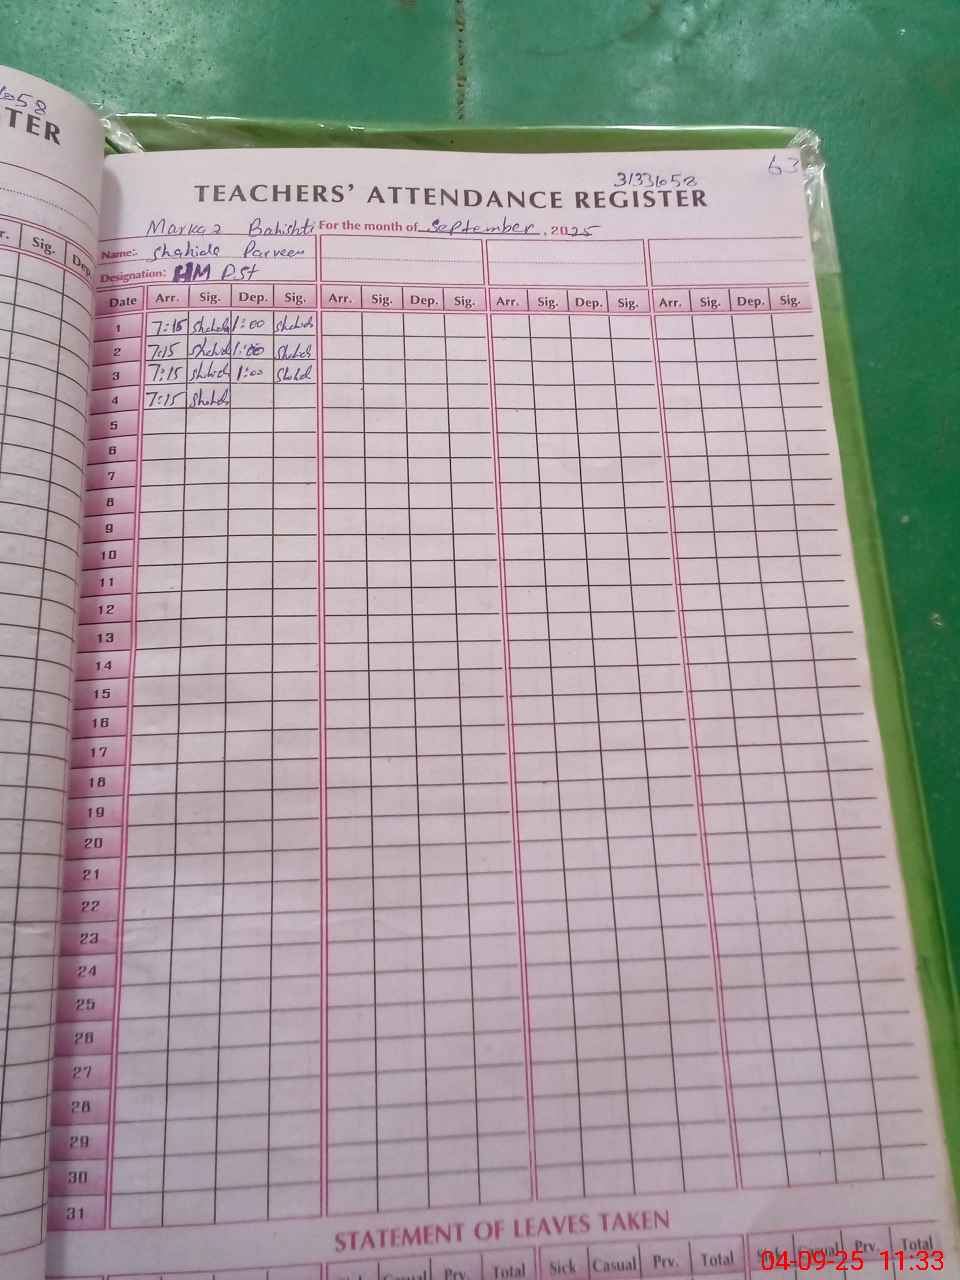 TER
r. Sig. Dep.
63
31331658
TEACHERS' ATTENDANCE REGISTER
Markaz Bahishti For the month of September, 2025
Name: Shahida Parveen
Designation: HM PST
Date Arr. Sig. Dep. Sig. Arr. Sig. Dep. Sig. Arr. Sig. Dep. Sig. Arr. Sig. Dep. Sig.
1 7:15 1:00
2 7:15 1:00
3 7:15 1:00
4 7:15
5
6
7
8
9
10
11
12
13
14
15
16
17
18
19
20
21
22
23
24
25
26
27
28
29
30
31
STATEMENT OF LEAVES TAKEN
Sick Casual Prv. Total Sick Casual Prv. Total Sick Casual Prv. Total
04-09-25 11:33